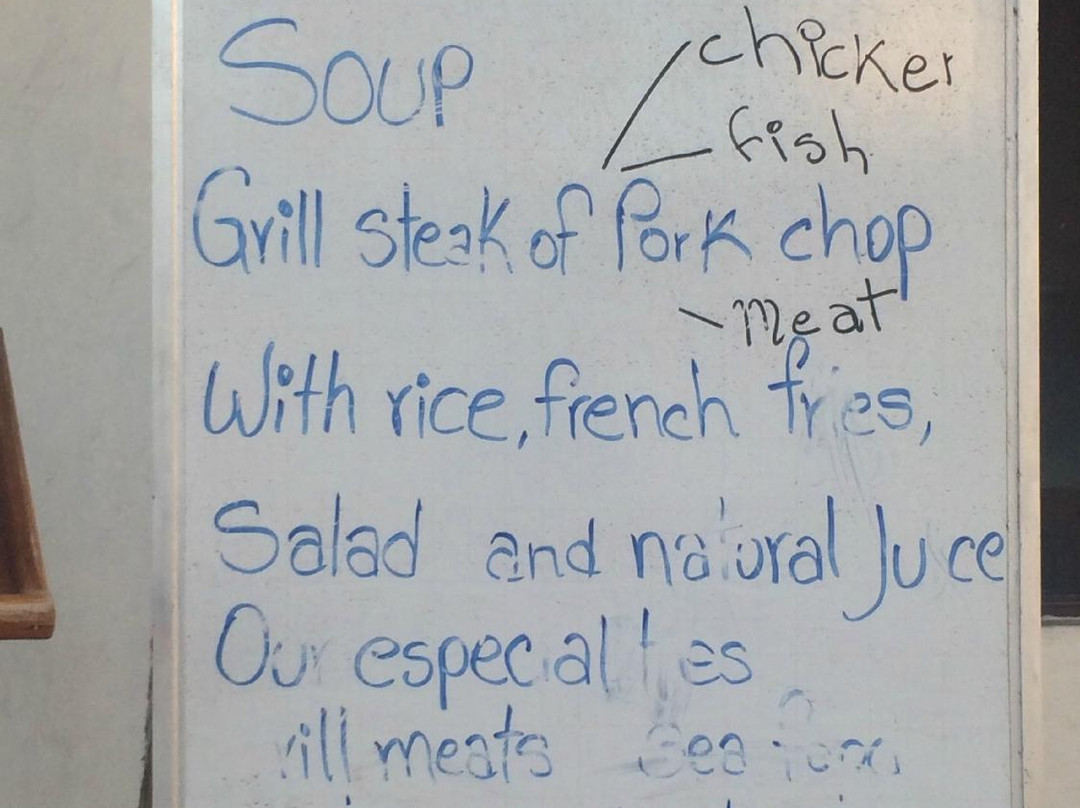 Soup
chicker
fish
Grill steak of Pork chop
meat
With rice, french fries,
Salad and natural Juice
Our especialties
rill meats Sea